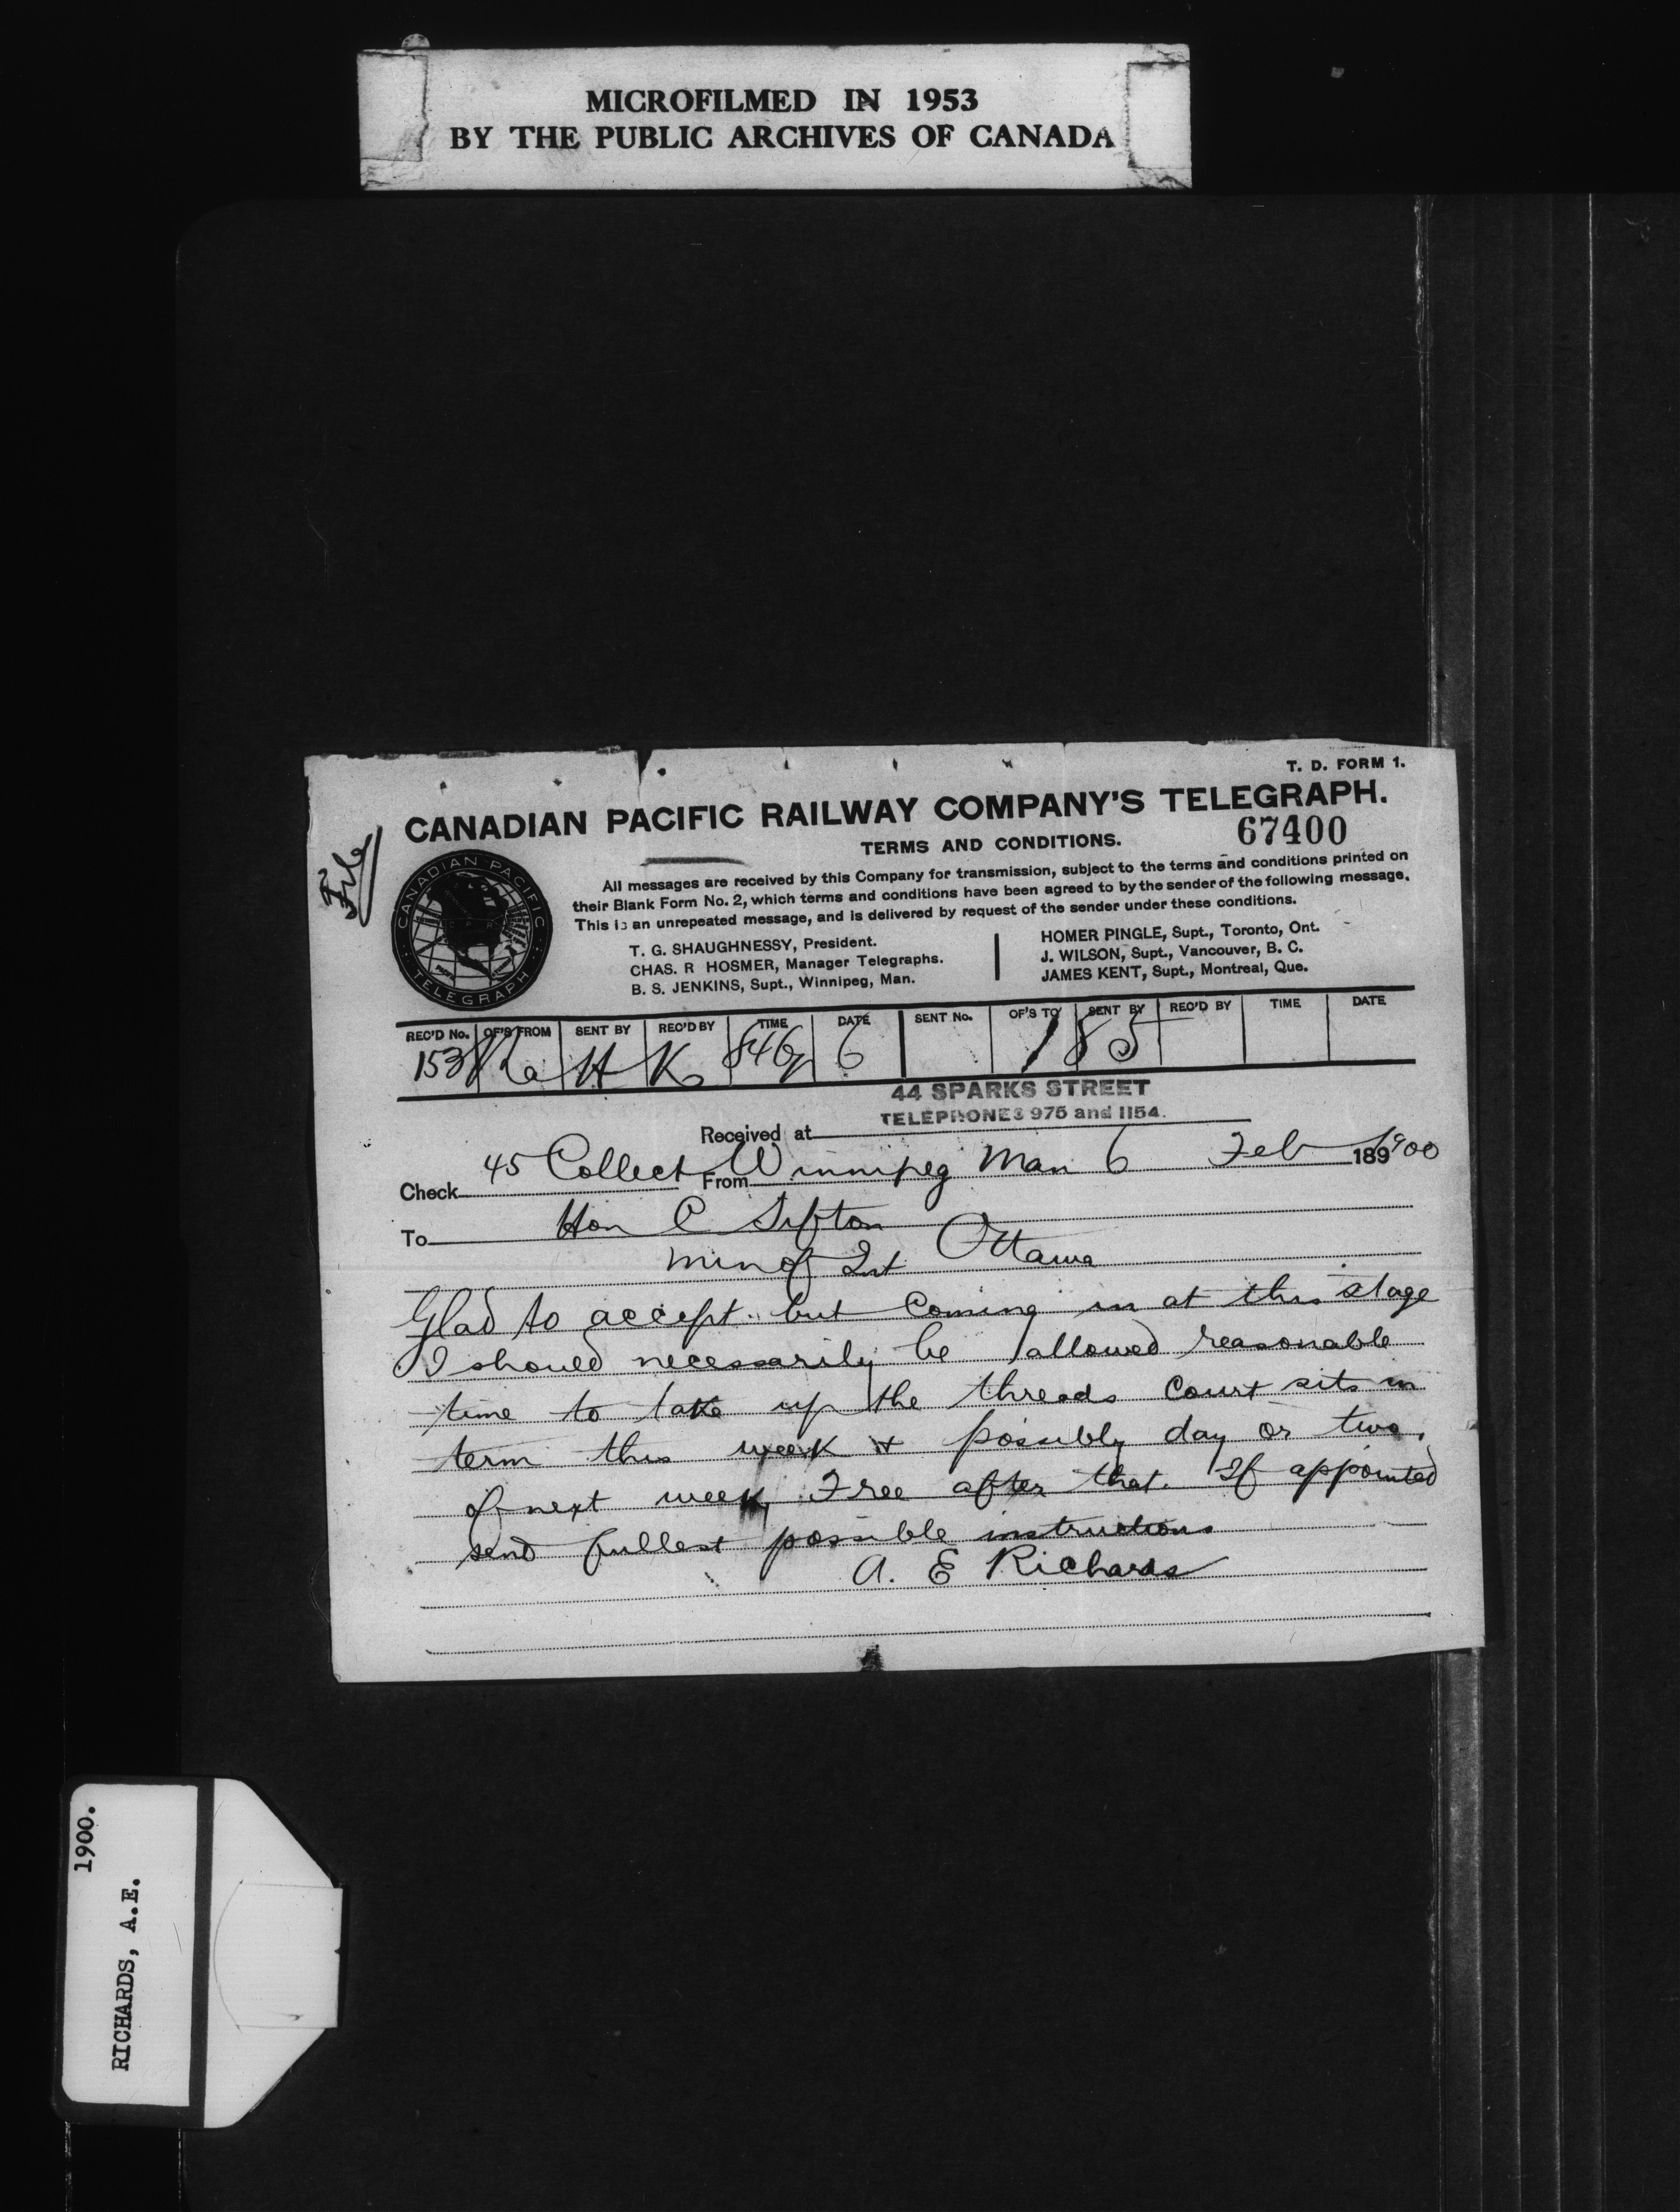 MICROFILMED IN 1953
BY THE PUBLIC ARCHIVES OF CANADA
T. D. FORM 1.
CANADIAN PACIFIC RAILWAY COMPANY'S TELEGRAPH.
67400
TERMS AND CONDITIONS.
File
All messages are received by this Company for transmission, subject to the terms and conditions printed on
their Blank Form No. 2, which terms and conditions have been agreed to by the sender of the following message.
This is an unrepeated message, and is delivered by request of the sender under these conditions.
CANADIAN PACIFIC
TELEGRAPH
T. G. SHAUGHNESSY, President.
CHAS. R HOSMER, Manager Telegraphs.
B. S. JENKINS, Supt., Winnipeg, Man.
HOMER PINGLE, Supt., Toronto, Ont.
J. WILSON, Supt., Vancouver, B. C.
JAMES KENT, Supt., Montreal, Que.
REC'D No. OF'S FROM SENT BY REC'D BY TIME DATE SENT No. OF'S TO SENT BY REC'D BY TIME DATE
153 H K 846 6 185
44 SPARKS STREET
TELEPHONES 975 and 1154.
Received at
Check 45 Collect From Winnipeg Man 6 Feb 189 1900
To Hon C Sifton
min of Int Ottawa
Glad to accept but coming in at this stage
I should necessarily be allowed reasonable
time to take up the threads Court sits in
term this week & possibly day or two.
of next week, Free after that. If appointed
send fullest possible instructions
A. E Richards
1900.
RICHARDS, A.E.